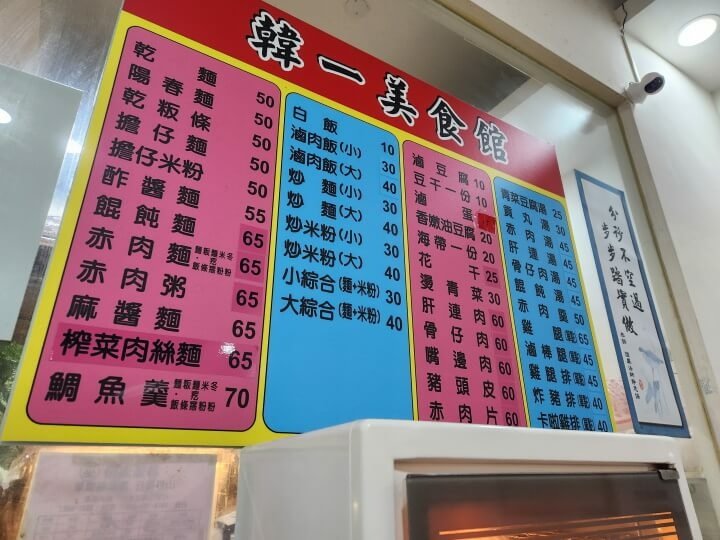 韓一美食館
乾麵 50
陽春麵 50
乾粄條 50
擔仔麵 50
擔仔米粉 50
酢醬麵 55
餛飩麵 65
赤肉麵 65
赤肉粥 65
麻醬麵 65
榨菜肉絲麵 65
鯛魚羹 70
白飯 10
滷肉飯(小) 30
滷肉飯(大) 40
炒麵(小) 30
炒麵(大) 40
炒米粉(小) 30
炒米粉(大) 40
小綜合(麵+米粉) 30
大綜合(麵+米粉) 40
滷豆腐 10
豆干一份 10
滷蛋
香嫩油豆腐 20
海帶一份 20
花干 25
燙青菜 30
肝連肉 60
骨仔肉 60
嘴邊肉 60
豬頭皮 60
赤肉片 60
青菜豆腐湯 25
貢丸湯 30
赤肉湯 45
肝連湯 45
骨肉湯
餛飩湯
赤肉羹
雞腿
滷排
炸豬排
卡啦雞排
分秒不空過
步步踏實做